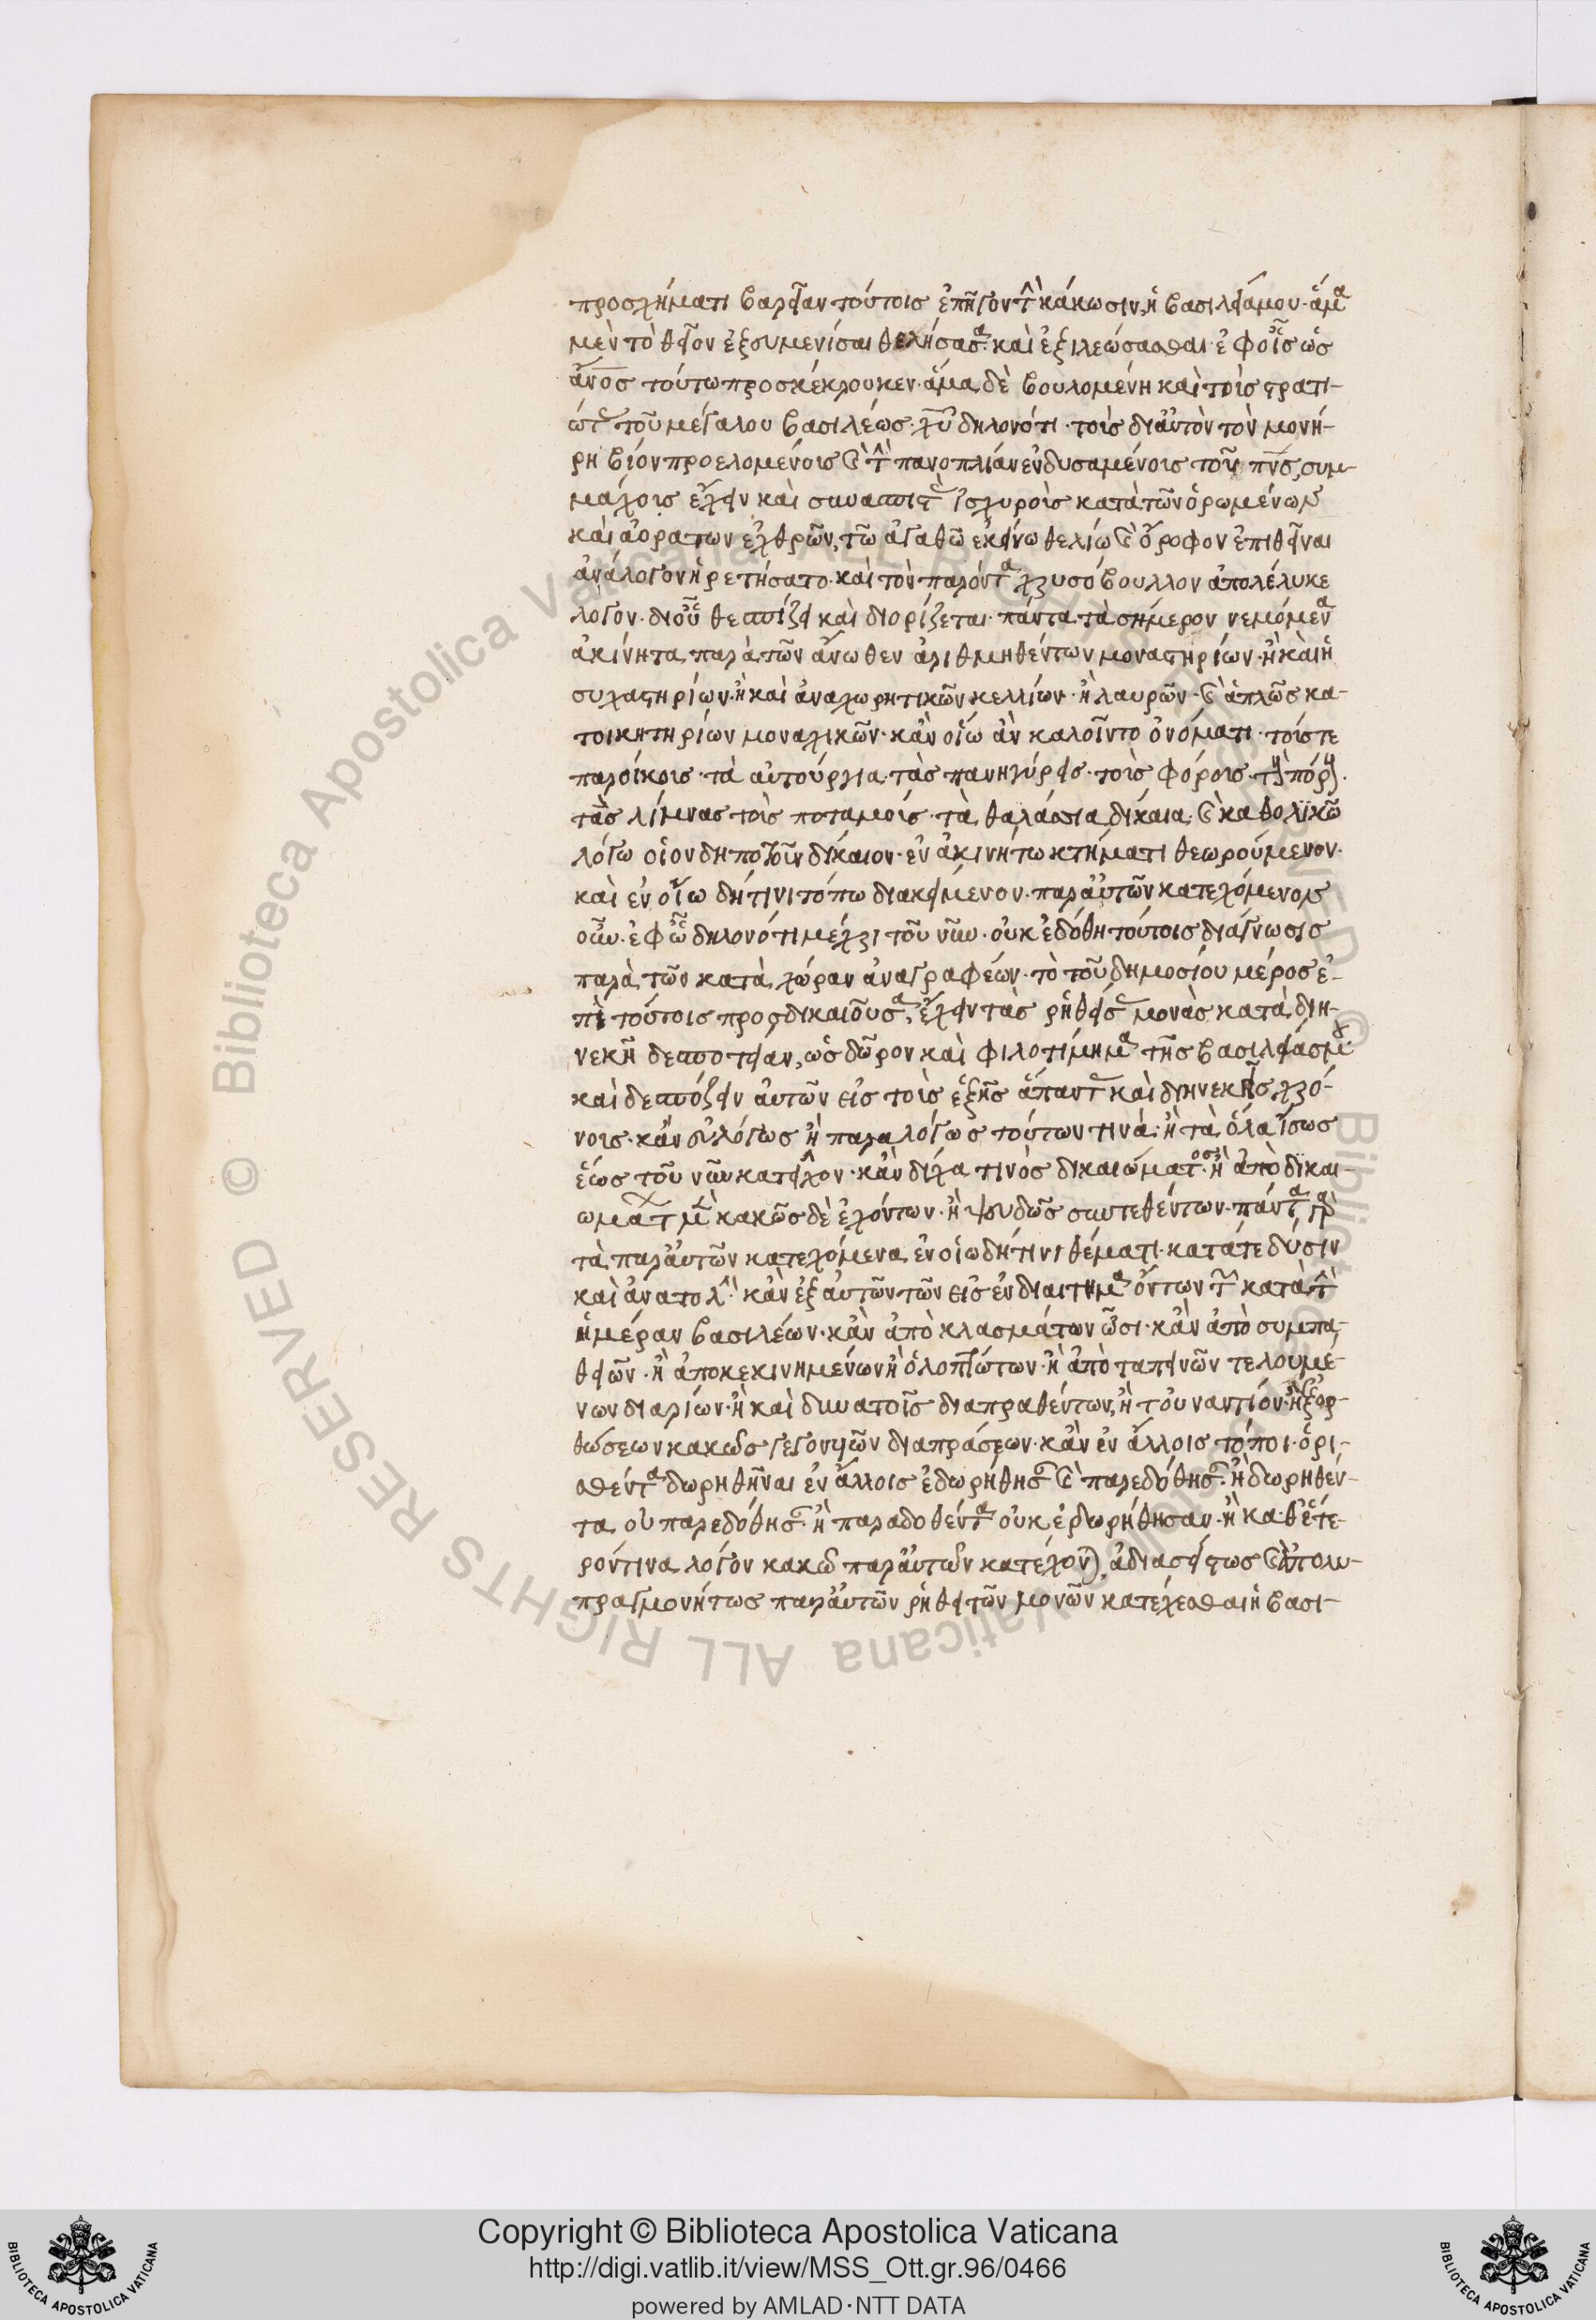 προσχήματι βαρεῖαν τούτοις ἐπῆγον τ κάκωσιν, ἡ βασιλεία μου· ἅμα
μὲν τὸ θεῖον ἐξευμενίσαι θελήσασα· καὶ ἐξιλεώσασθαι ἐφ οἷς ὡς
ἄνος τούτω προσκέκρουκεν· ἅμα δὲ βουλομένη καὶ τοὺς στρατι-
ώτ τοῦ μεγάλου βασιλέως· χυ δηλονότι· τοὺς δι αὐτὸν τὸν μονή-
ρη βίον προελομένους καὶ τ πανοπλίαν ἐνδυσαμένους τοῦ πνς, συμ-
μάχους ἔχειν καὶ συνασπιστ ἰσχυροὺς κατὰ τῶν ὁρωμένων
καὶ ἀοράτων ἐχθρῶν, τῶ ἀγαθῶ ἐκείνω θελίω καὶ ὄροφον ἐπιθεῖναι
ἀνάλογον ἡρετήσατο· καὶ τὸν παρόντα χρυσόβουλλον ἀπολέλυκε
λόγον· δι οὗ θεσπίζει καὶ διορίζεται· πάντα τὰ σήμερον νεμόμενα
ἀκίνητα παρὰ τῶν ἄνωθεν ἀριθμηθέντων μοναστηρίων· ἢ καὶ ἡ
συχαστηρίων· ἢ καὶ ἀναχωρητικῶν κελλίων· ἢ λαυρῶν· καὶ ἁπλῶς κα-
τοικητηρίων μοναχικῶν· κἂν οἵω ἂν καλοῖντο ὀνόματι· τούς τε
παροίκους· τὰ αὐτούργια· τὰς πανηγύρεις· τοὺς φόρους· τ πόρ·
τὰς λίμνας τοὺς ποταμοὺς· τὰ θαλάσσια δίκαια· καὶ καθολικῶ
λόγω οἷον δήποτ οὖν δίκαιον· ἐν ἀκινήτω κτήματι θεωρούμενον·
καὶ ἐν οἵω δήτινι τόπω διακείμενον· παρ αὐτῶν κατεχόμενον
οὖν· ἐφ ὧ δηλονότι μέχρι τοῦ νῦν· οὐκ ἐδόθη τούτοις διάγνωσις
παρὰ τῶν κατὰ χώραν ἀναγραφέων· τὸ τοῦ δημοσίου μέρος ἐ-
πὶ τούτοις προσδικαιοῦσα, ἔχειν τὰς ῥηθείσ μονὰς κατὰ διη-
νεκῆ δεσποτείαν, ὡς δῶρον καὶ φιλοτίμημα τῆς βασιλείας μου·
καὶ δεσπόζειν αὐτῶν εἰς τοὺς ἑξῆς ἅπαντ καὶ διηνεκεῖς χρό-
νους· κἂν εὐλόγως ἢ παραλόγως τούτων τινὰ· ἢ τὰ ὅλα ἴσως
ἕως τοῦ νῦν κατεῖχον· κἂν δίχα τινὸς δικαιώματος· ἢ ἀπὸ δικαι-
ωμάτ μ κακῶς δὲ ἐχόντων· ἢ ψευδῶς συντεθέντων· πάντα γὰρ
τὰ παρ αὐτῶν κατεχόμενα ἐν οἵω δήτινι θέματι· κατά τε δύσιν
καὶ ἀνατολ· κἂν ἐξ αὐτῶν τῶν εἰς ἐνδιαίτημα ὄντων τ κατὰ τ
ἡμέραν βασιλέων· κἂν ἀπὸ κλασμάτων ὦσι· κἂν ἀπὸ συμπα-
θειῶν· ἢ ἀποκεκινημένων ἢ ὁλοπτώτων· ἢ ἀπὸ ταπεινῶν τελουμέ-
νων διαρίων· ἢ καὶ δυνατοῖς διαπραθέντων, ἢ τοὐναντίον· ἢ ἐξ ἐξορ-
θώσεων κακῶς γεγονυιῶν διαπράσεων· κἂν ἐν ἄλλοις τόποι· ὁρι-
σθέντα δωρηθῆναι ἐν ἄλλοις ἐδωρήθησ καὶ παρεδόθησ· ἢ δωρηθέν-
τα οὐ παρεδόθησ· ἢ παραδοθέντα οὐκ ἐδωρήθησαν· ἢ καθ ἕτε-
ρόν τινα λόγον κακῶ παρ αὐτῶν κατέχον, ἀδιασείστως καὶ ἀπολυ-
πραγμονήτως παρ αὐτῶν ῥηθει τῶν μονῶν κατέχεσθαι ἡ βασι-
Copyright © Biblioteca Apostolica Vaticana
http://digi.vatlib.it/view/MSS_Ott.gr.96/0466
powered by AMLAD·NTT DATA